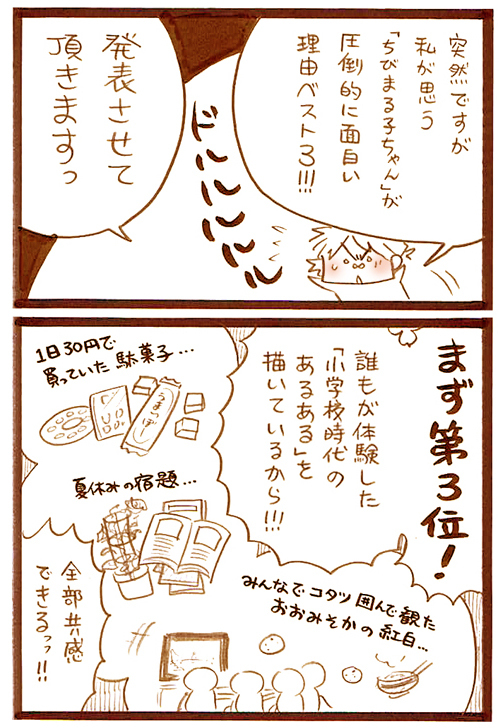 突然ですが
私が思う
「ちびまる子ちゃん」が
圧倒的に面白い
理由ベスト3!!!
ドルルルルル
発表させて
頂きますっ
まず第3位!
誰もが体験した
「小学校時代の
あるある」を
描いているから!!!
1日30円で
買っていた駄菓子…
うまっぼー
夏休みの宿題…
みんなでコタツ囲んで観た
おおみそかの紅白…
全部共感
できるっっ!!